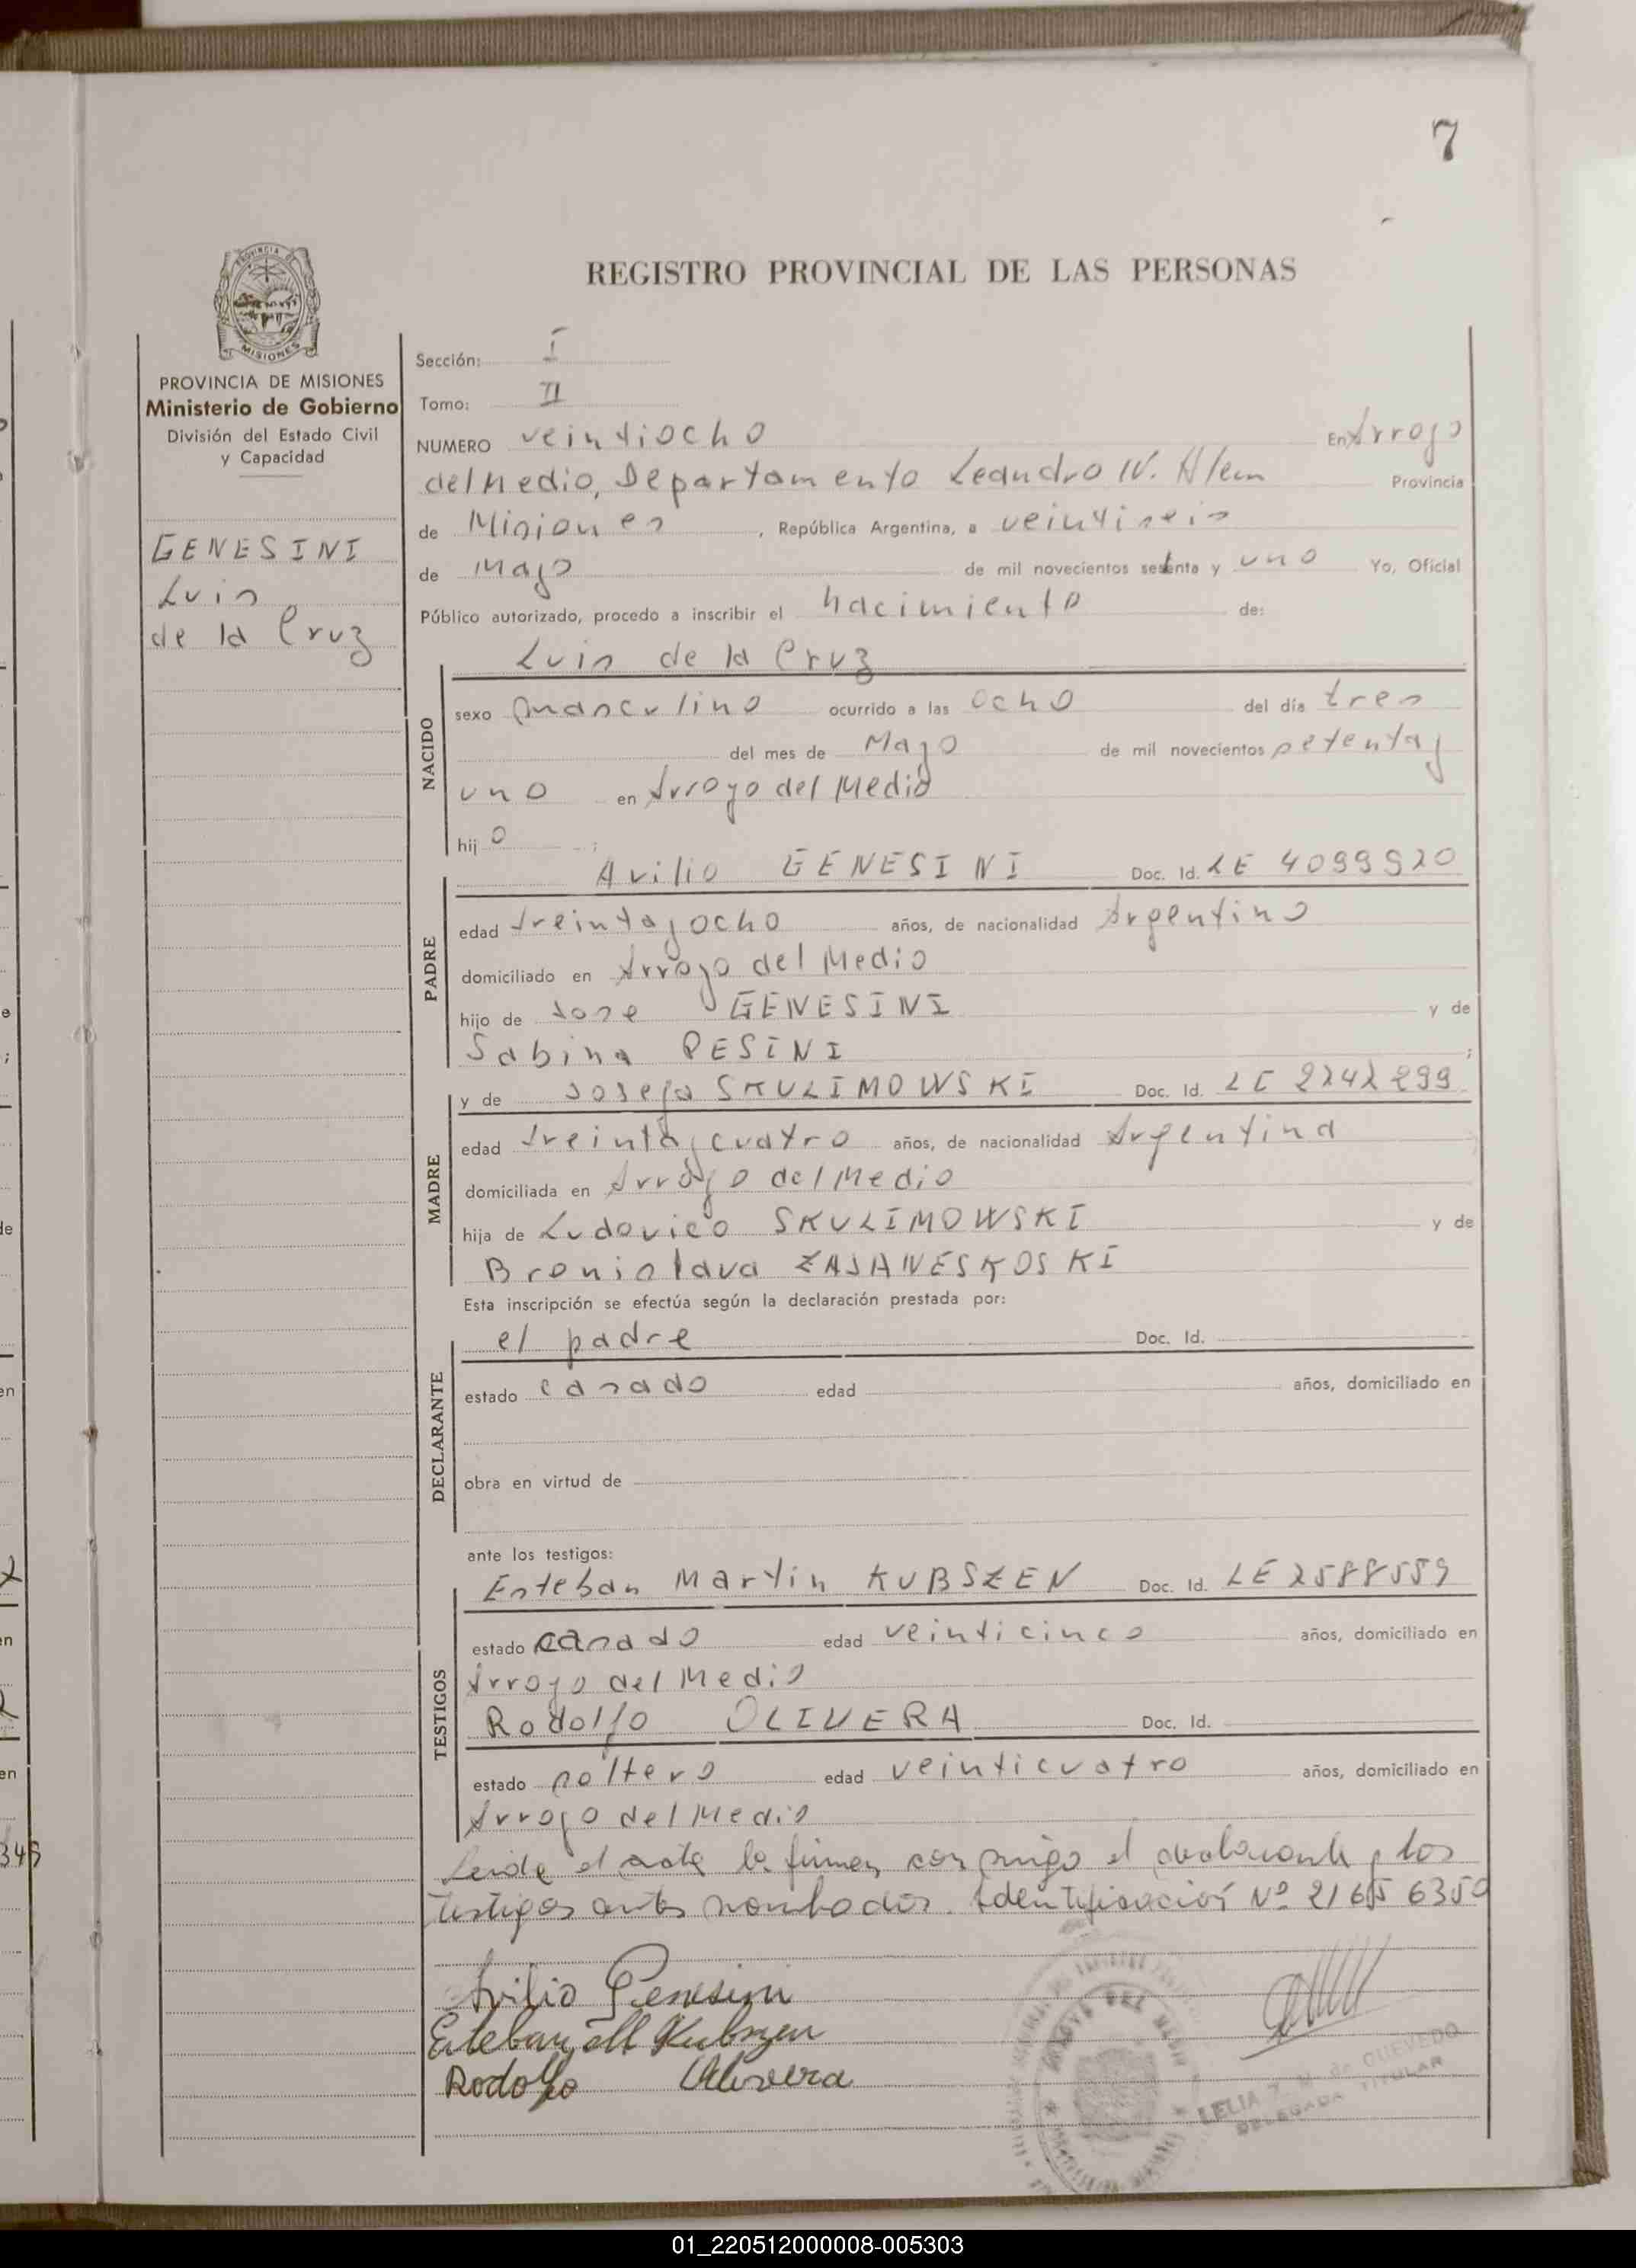 7
REGISTRO PROVINCIAL DE LAS PERSONAS
PROVINCIA
MISIONES
PROVINCIA DE MISIONES
Ministerio de Gobierno
División del Estado Civil
y Capacidad
GENESINI
Luis
de la Cruz
Sección: I
Tomo: II
NUMERO veintiocho En Arroyo
del Medio, Departamento Leandro N. Alem Provincia
de Misiones, República Argentina, a veintiseis
de Mayo de mil novecientos setenta y uno Yo, Oficial
Público autorizado, procedo a inscribir el nacimiento de:
Luis de la Cruz
NACIDO
sexo masculino ocurrido a las ocho del día tres
del mes de Mayo de mil novecientos setenta y
uno en Arroyo del Medio
hijo ;
Avilio GENESINI Doc. Id. LE 4099920
PADRE
edad treinta y ocho años, de nacionalidad Argentino
domiciliado en Arroyo del Medio
hijo de Jose GENESINI y de
Sabina PESINI ;
y de Josefa SKULIMOWSKI Doc. Id. LC 2242299
MADRE
edad treinta y cuatro años, de nacionalidad Argentina
domiciliada en Arroyo del Medio
hija de Ludovico SKULIMOWSKI y de
Bronislava ZAJANESKOSKI
Esta inscripción se efectúa según la declaración prestada por:
el padre Doc. Id.
DECLARANTE
estado casado edad años, domiciliado en
obra en virtud de
ante los testigos:
Esteban Martin KUBSZEN Doc. Id. LE 2588559
TESTIGOS
estado casado edad veinticinco años, domiciliado en
Arroyo del Medio
Rodolfo OLIVERA Doc. Id.
estado soltero edad veinticuatro años, domiciliado en
Arroyo del Medio
Leida el acta la firman conmigo el declarante y los
testigos antes nombados. Identificación Nº 21656350
Avilio Genesini
Esteban M Kubszen
Rodolfo Olivera
LELIA de QUEVEDO
DELEGADA TITULAR
01_220512000008-005303